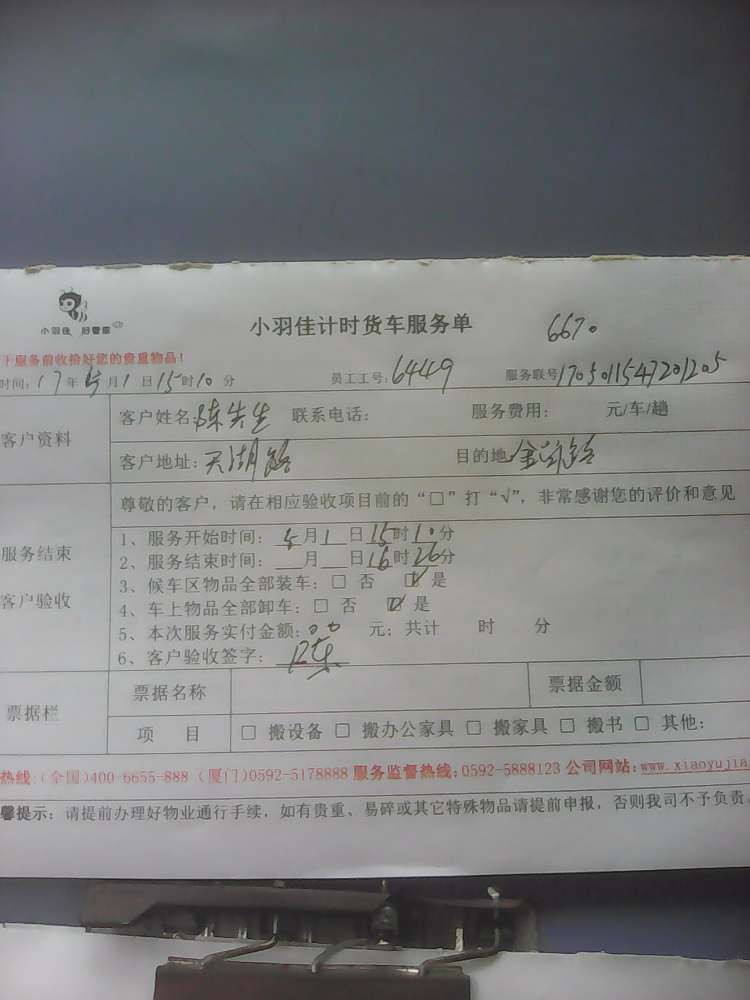 小羽佳 好管家
小羽佳计时货车服务单 6670
于服务前收拾好您的贵重物品!
时间: 17年 5月1日15时10分 员工工号: 6449 服务联号 1705011547201205
客户资料
客户姓名: 陈先生 联系电话: 服务费用: 元/车/趟
客户地址: 天湖路 目的地
尊敬的客户, 请在相应验收项目前的“□”打“√”, 非常感谢您的评价和意见
服务结束
客户验收
1、服务开始时间: 5月1日15时10分
2、服务结束时间: __月__日16时26分
3、候车区物品全部装车: □ 否 ☑ 是
4、车上物品全部卸车: □ 否 ☑ 是
5、本次服务实付金额: 元; 共计 时 分
6、客户验收签字: 陈
票据栏
票据名称 票据金额
项 目 □ 搬设备 □ 搬办公家具 □ 搬家具 □ 搬书 □ 其他:
热线: (全国)400-6655-888 (厦门)0592-5178888 服务监督热线: 0592-5888123 公司网站: www.xiaoyujia
馨提示: 请提前办理好物业通行手续, 如有贵重、易碎或其它特殊物品请提前申报, 否则我司不予负责